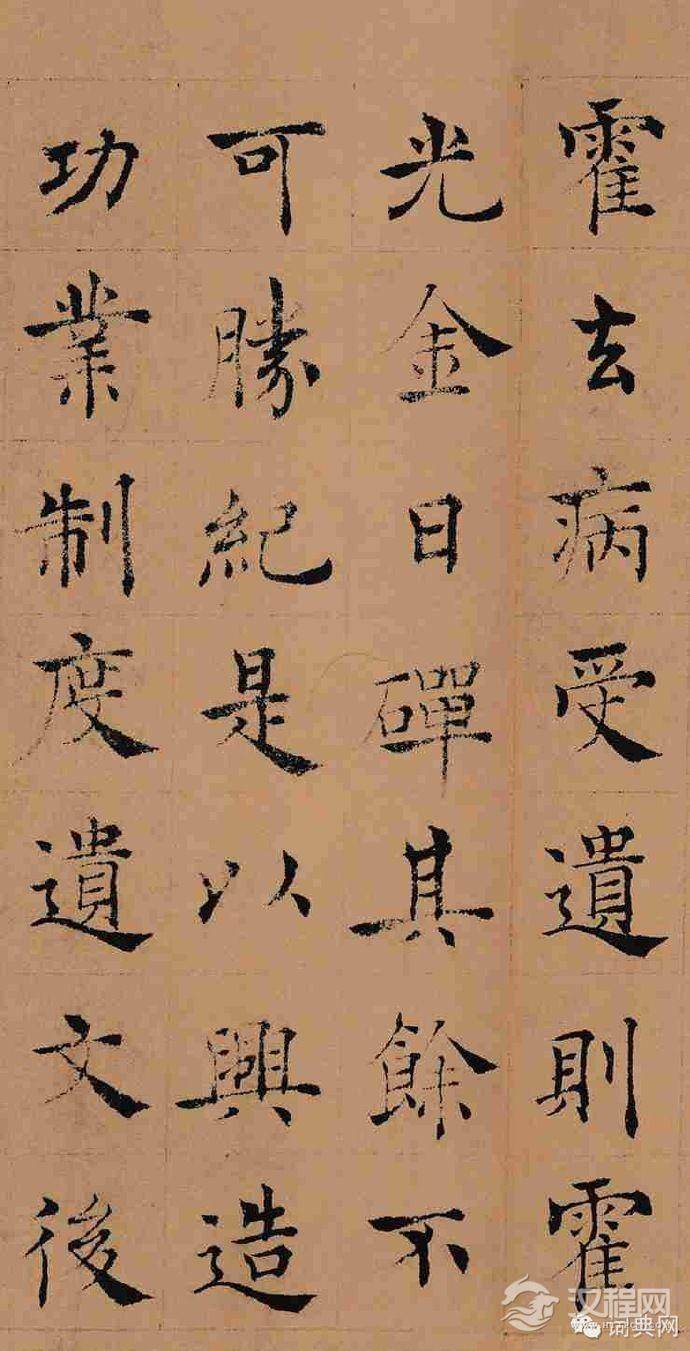 霍去病受遺則霍
光金日磾其餘不
可勝紀是以興造
功業制度遺文後
汉程网
词典网